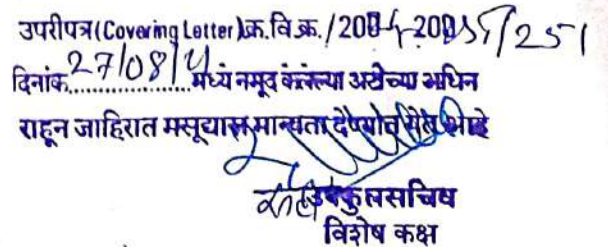 उपरीपत्र(Covering Letter)क्र.वि.क्र./200 -200 /251
दिनांक 27/08/ मध्यें नमूद केलेल्या अटीच्या अधिन
राहून जाहिरात मसूद्यास मान्यता देण्यात येत आहे
उपकुलसचिव
विशेष कक्ष